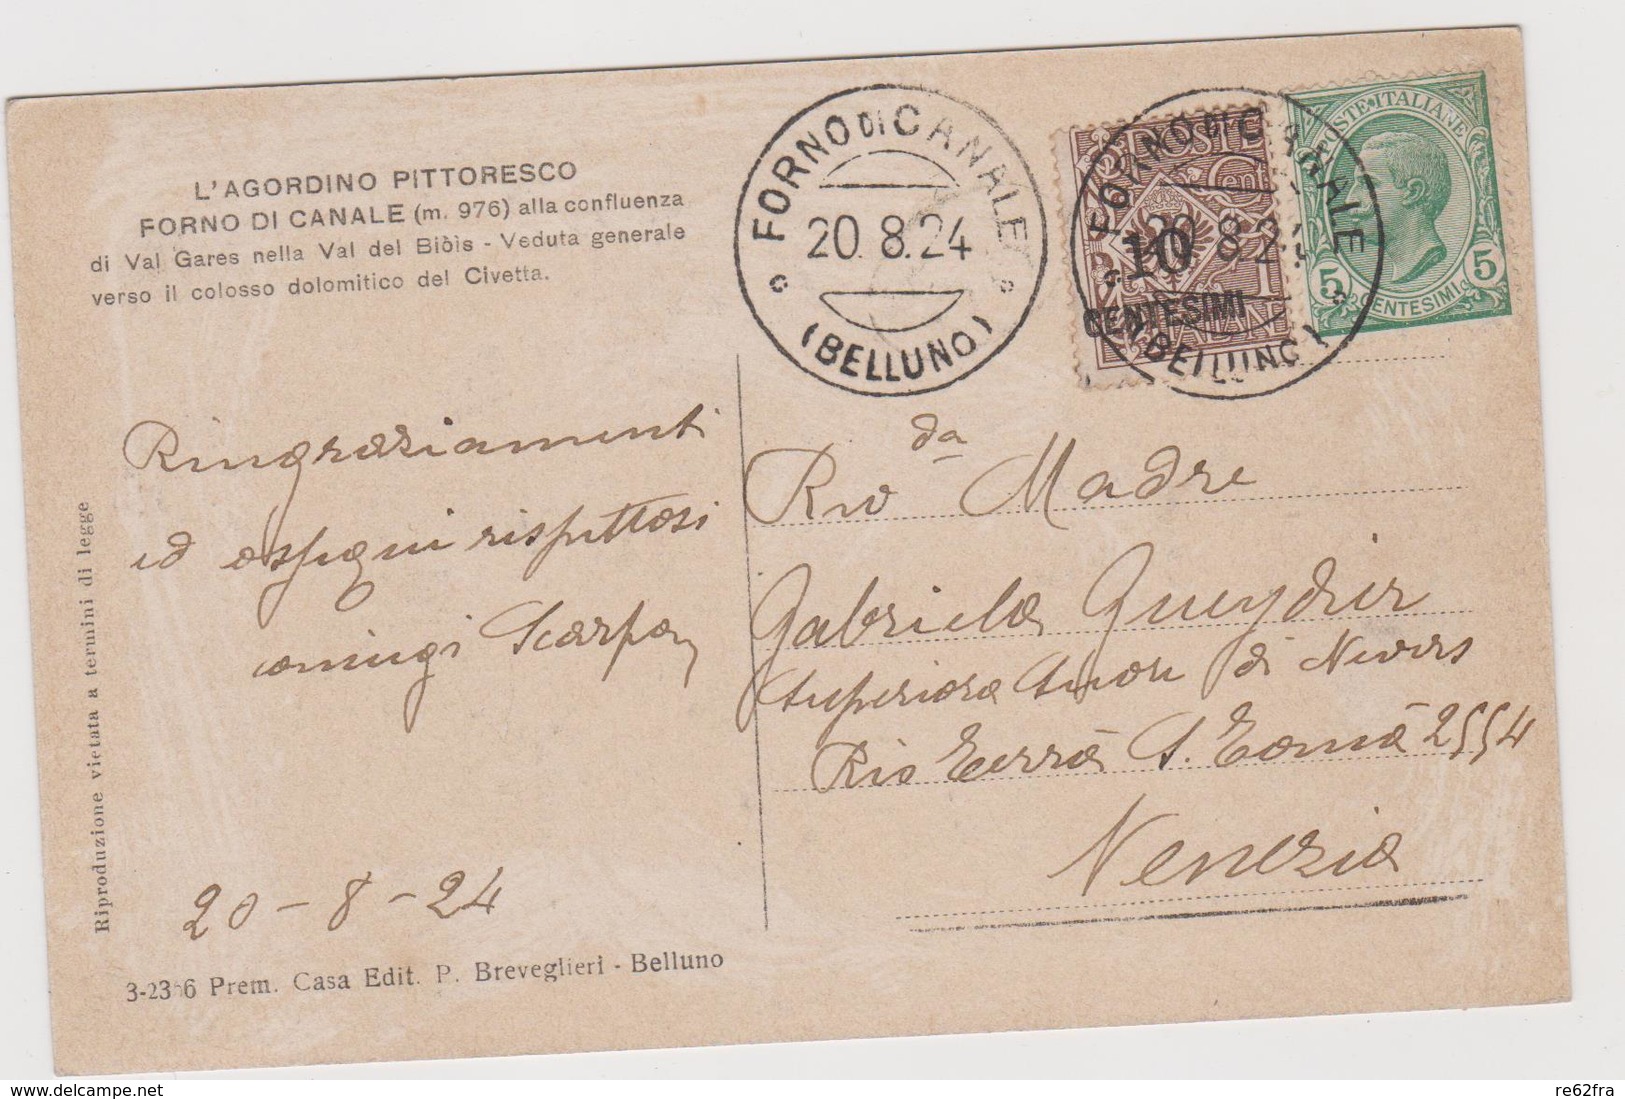 L'AGORDINO PITTORESCO
FORNO DI CANALE (m. 976) alla confluenza
di Val Gares nella Val del Biòis - Veduta generale
verso il colosso dolomitico del Civetta.
FORNO DI CANALE
20.8.24
(BELLUNO)
POSTE
Cent
1
10
CENTESIMI
ITALIANE
FORNO DI CANALE
20.8.24
(BELLUNO)
POSTE ITALIANE
5 5
CENTESIMI
Ringraziamenti
ed ossequi rispettosi
Scarpa
20-8-24
Rvda Madre
Gabriela Gueydier
Superiora Suore di Nevers
Rio Terrà S. Tomà 2554
Venezia
Riproduzione vietata a termini di legge
Prem. Casa Edit. P. Breveglieri - Belluno
www.delcampe.net
re62fra